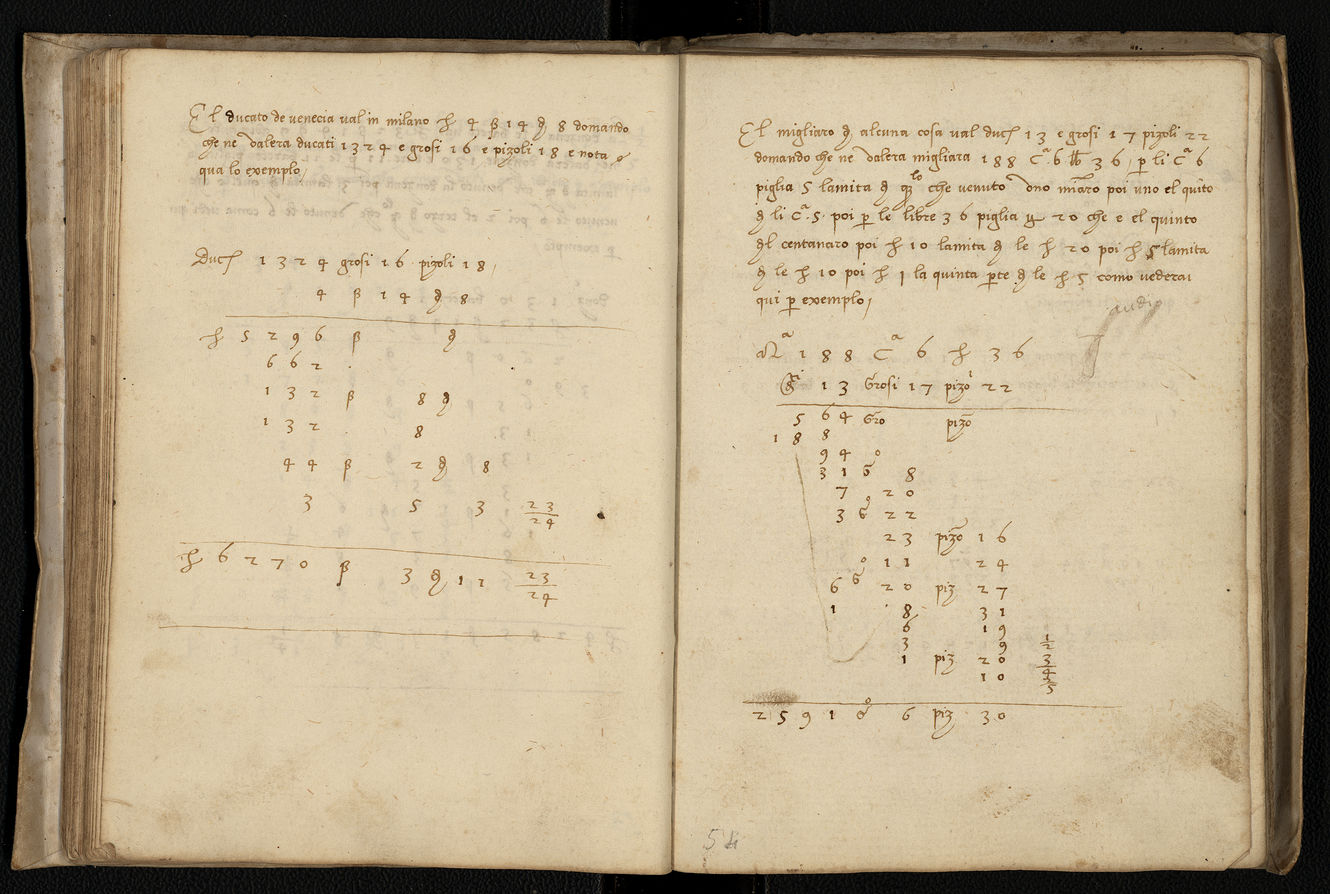 El ducato de venecia val in milano ħ 4 β 14 ₰ 8 domando
che ne valera ducati 1324 e grosi 16 e pizoli 18 e nota
qua lo exemplo
Ducͭ 1324 grosi 16 pizoli 18
4 β 14 ₰ 8
ħ 5296 β ₰
662
132 β 8 ₰
132 8
44 β 2 ₰ 8
3 5 3 23/24
ħ 6270 β 3 ₰ 11 23/24
El migliaro ₰ alcuna cosa val ducͭ 13 e grosi 17 pizoli 22
domando che ne valera migliara 188 Cᵃ 6 ℔ 36 p̲ li Cᵃ 6
piglia 5 lamita ₰ che venuto poi uno el quĩto
₰ li Cᵃ 5 poi p̲ le libre 36 piglia 20 che e el quinto
₰l centanaro poi ħ 10 lamita ₰ le ħ 20 poi ħ 5 lamita
₰ le ħ 10 poi ħ 1 la quinta p̲te ₰ le ħ 5 como vederai
qui p̲ exemplo
Mᵃ 188 Cᵃ 6 ħ 36
13 Grosi 17 pizoⁱ 22
564 Gro pizõ
188
94
31 Gᵒ 8
7 20
3 Gᵒ 22
23 pizõ 16
11 24
6 Gᵒ 20 piz 27
1 8 31
6 19
3 9 1/2
1 piz 20 3/4
10 3/5
2591 Gᵒ 6 piz 30
54